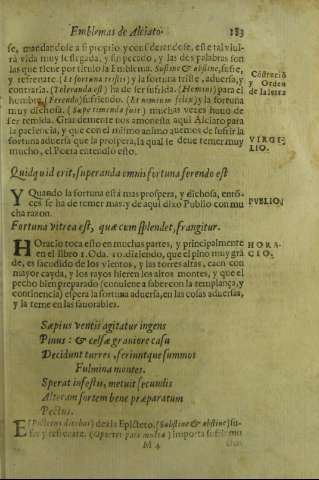 Emblemas de Alciato. 183
se, mandandose a si proprio, y consider andose, este tal viui-
rà vida muy sossegada, y sin pecado, y las des palabras son
las que tiene por titulo la Emblema. Sustine & abstine, sufre,
y refrenate. (Et fortuna tristis) y la fortuna triste, aduersa, y
contraria. (Toleranda est) ha de ser sufrida. (Homini) para el
hombre (Ferendo) sufriendo. (Et nimium felix) y la fortuna
muy dichosa. (Sæpe timenda fuit) muchas vezes huuo de
ser temida. Grandemente nos amonesta aqui Alciato para
la paciencia, y que con el mismo animo auemos de sufrir la
fortuna aduersa que la prospera, la qual se deue temer muy
mucho, el Poeta entendio esto.
Costruciō
y Orden
de la letra
VIRGI-
LIO.
Quidquid erit, superanda omnis fortuna ferendo est
Y Quando la fortuna està mas prospera, y dichosa, entō-
ces se ha de temer mas: y de aqui dixo Publio con mu
cha razon.
PVBLIO.
Fortuna vitrea est, quæ cum splendet, frangitur.
HOratio toca esto en muchas partes, y principalmente
en el libro 2. Oda. 10. diziendo, que el pino muy grā
de, es sacudido de los vientos, y las torres altas, caen con
mayor cayda, y los rayos hieren los altos montes, y que el
pecho bien preparado (conuiene a saber con la templança, y
continencia) espera la fortuna aduersa, en las cosas aduersas,
y la teme en las fauorables.
HORA-
CIO.
Sæpius ventis agitatur ingens
Pinus: & celsæ grauiore casu
Decidunt turres, feriuntque summos
Fulmina montes.
Sperat infestis, metuit secundis
Alteram sortem bene præparatum
Pectus.
E (Epictetus dicebat) dezia Epicteto. (Sustine & abstine) su-
fre y refrenate. (Oportet pati multa) importa sufrir mu
M 4
chas